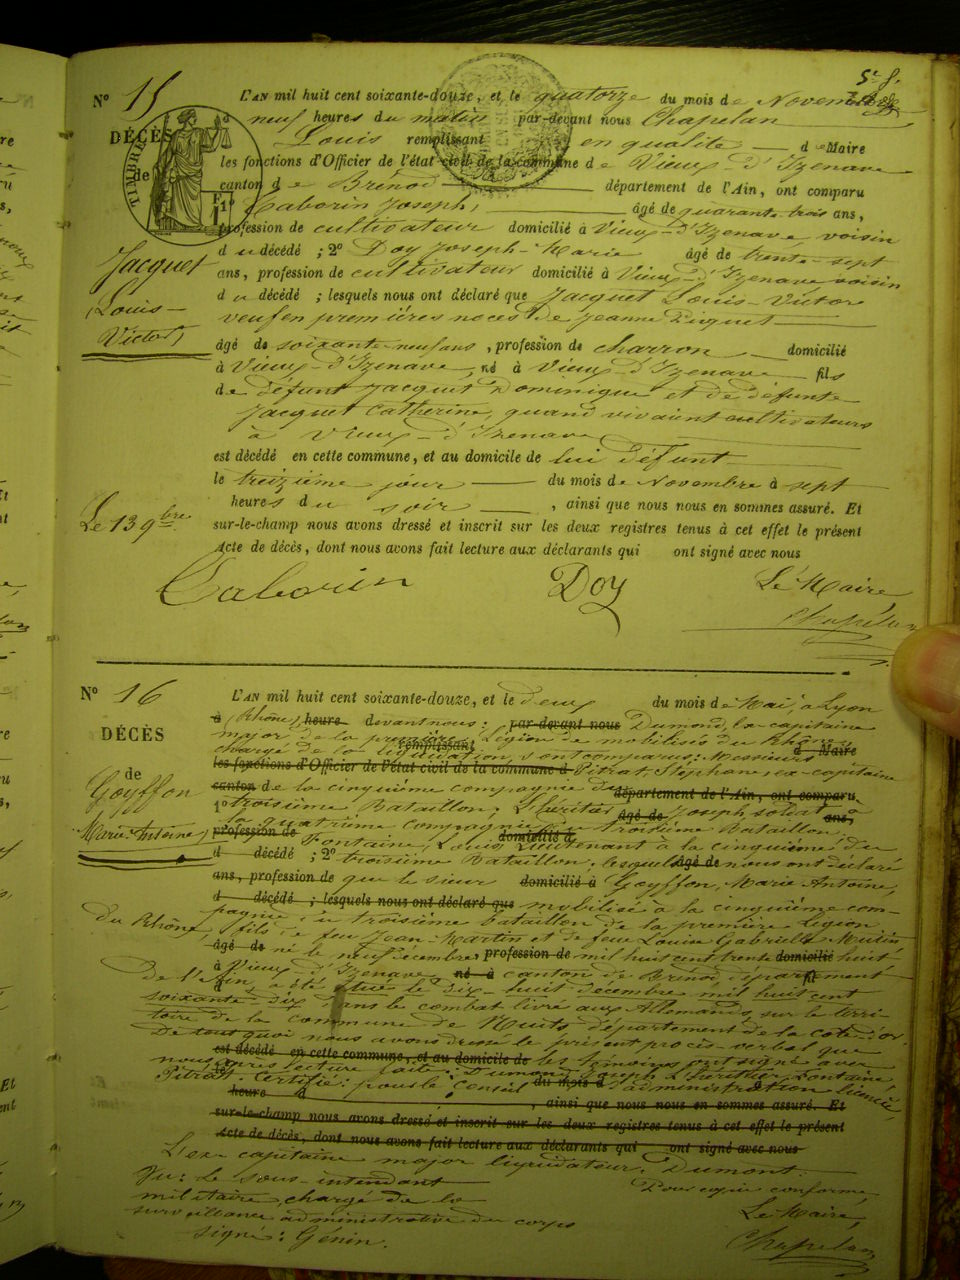 5e f.
N° 15
DÉCÈS
de
Jacquet
(Louis-
Victor)
Le 13 9bre
L'AN mil huit cent soixante-douze, et le quatorze du mois de Novembre
neuf heures du matin par-devant nous Chapelan
Louis remplissant en qualité de Maire
les fonctions d'Officier de l'état civil de la commune de Vieux-d'Izenave
canton de Brénod département de l'Ain, ont comparu
1° Caborin Joseph, âgé de quarante-trois ans,
profession de cultivateur domicilié à Vieux-d'Izenave voisin
du décédé ; 2° Doy Joseph-Marie âgé de trente-sept
ans, profession de cultivateur domicilié à Vieux-d'Izenave voisin
du décédé ; lesquels nous ont déclaré que Jacquet Louis-Victor
veuf en premières noces de Jeanne Piquet
âgé de soixante-neuf ans, profession de charron domicilié
à Vieux-d'Izenave, né à Vieux-d'Izenave fils
de défunt Jacquet Dominique et de défunte
Jacquet Catherine, quand vivaient cultivateurs
à Vieux-d'Izenave
est décédé en cette commune, et au domicile de lui défunt
le treizième jour du mois de Novembre à sept
heures du soir, ainsi que nous nous en sommes assuré. Et
sur-le-champ nous avons dressé et inscrit sur les deux registres tenus à cet effet le présent
Acte de décès, dont nous avons fait lecture aux déclarants qui ont signé avec nous
Caborin Doy Le Maire
Chapelan
N° 16
DÉCÈS
de
Goyffon
Marie-Antoine)
L'AN mil huit cent soixante-douze, et le deux du mois de Mai, à Lyon
à (Rhône), heure devant nous : par-devant nous Dumond, ex-capitaine
major de la première Légion de mobilisés du Rhône,
remplissant de Maire
chargé de la liquidation, sont comparus : Messieurs
les fonctions d'Officier de l'état civil de la commune d Pitrat, Stéphane, ex-capitaine
canton de la cinquième compagnie du département de l'Ain, ont comparu
1° troisième Bataillon; Lheritier âgé de Joseph soldat à ans,
la quatrième compagnie du troisième Bataillon;
profession de Fontaine, Louis domicilié à Lieutenant à la cinquième du
d décédé ; 2° troisième Bataillon; lesquels âgé de nous ont déclaré
ans, profession de que le sieur domicilié à Goyffon, Marie Antoine,
d décédé ; lesquels nous ont déclaré que mobilisé à la cinquième com-
pagnie du troisième bataillon de la première Légion
du Rhône, fils de feu Jean-Martin et de feue Louise Gabrielle Mutin,
âgé de né le neuf Décembre profession de mil huit cent trente domicilié huit
à Vieux-d'Izenave, né à canton de Brénod département
De l'Ain, a été tué le dix-huit Décembre mil huit cent fil
soixante-dix dans le combat livré aux Allemands, sur le terri-
toire de la commune de Nuits, département de la côte-d'or.
De tout quoi nous avons dressé le présent procès-verbal que
est décédé en cette commune, et au domicile de les témoins ont signé avec
nous, après lecture faite : Dumond, Joseph Lheritier, Fontaine,
Pitrat. Certifié : pour le conseil du mois d d'administration licencié,
heure d, ainsi que nous nous en sommes assuré. Et
sur-le-champ nous avons dressé et inscrit sur les deux registres tenus à cet effet le présent
Acte de décès, dont nous avons fait lecture aux déclarants qui ont signé avec nous
L'ex-capitaine major liquidateur : Dumont.
Vu : Le sous-intendant
militaire, chargé de la
surveillance administrative du corps
signé : Génin.
Pour copie conforme
Le Maire,
Chapelan